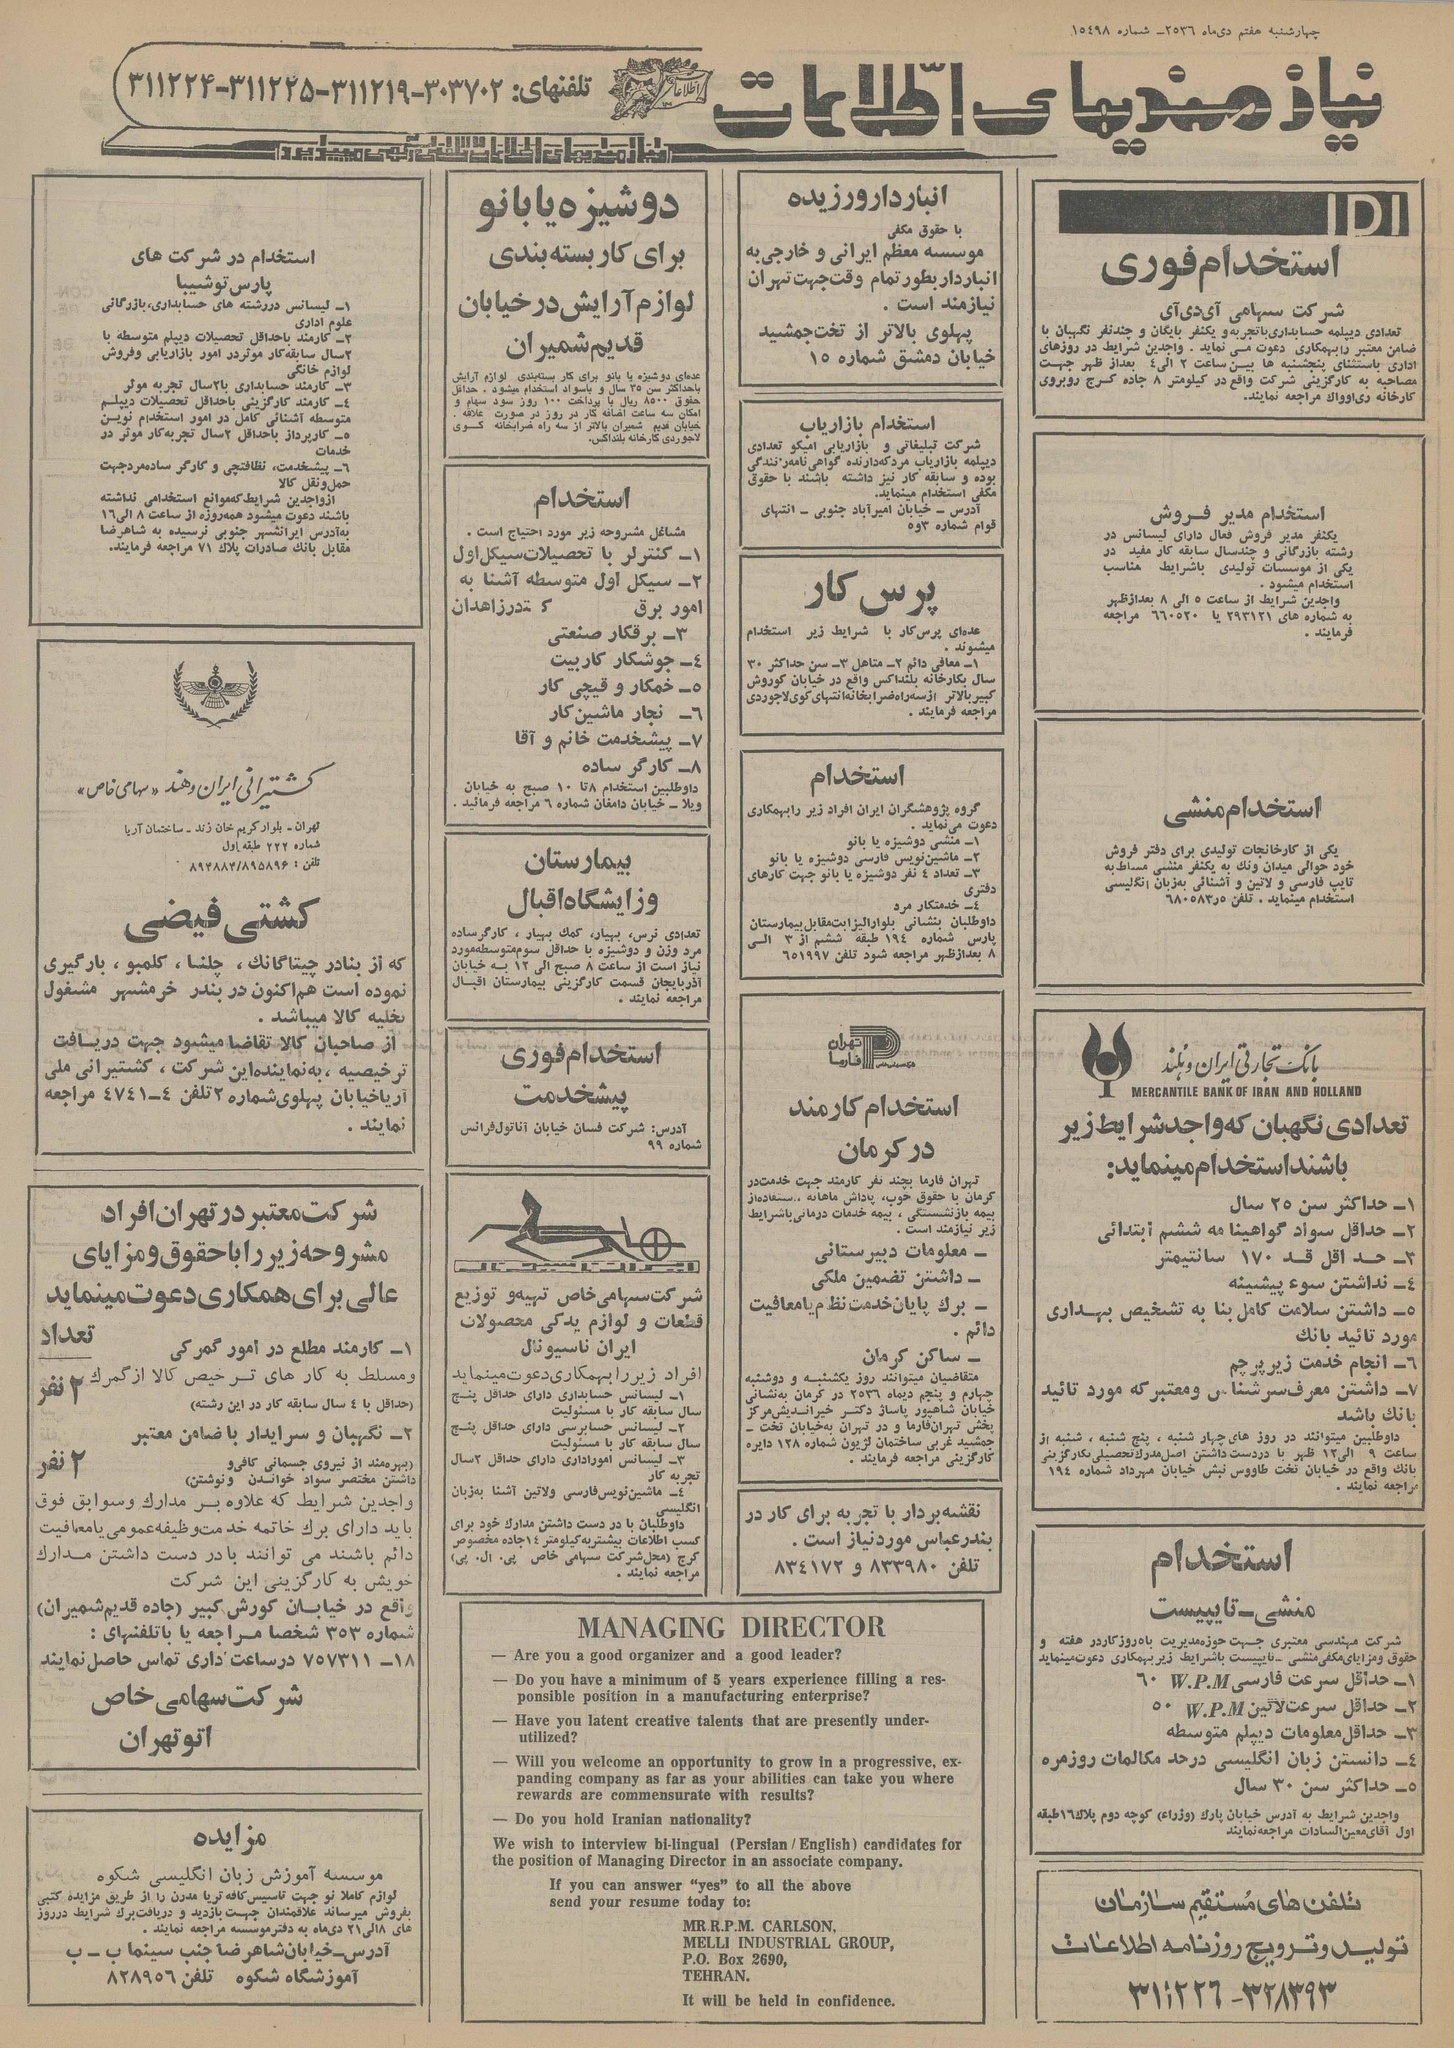 چهارشنبه هفتم دی‌ماه ۲۵۳۶ـ شماره ۱۵۴۹۸
نیازمندیهای اطلاعات
تلفنهای: ۳۰۳۷۰۲-۳۱۱۲۱۹-۳۱۱۲۲۵-۳۱۱۲۲۴
نیازمندیهای اطلاعات تلفنی آگهی میپذیرد
IDI
استخدام فوری
شرکت سهامی آی‌دی‌آی
تعدادی دیپلمه حسابداری باتجربه و یکنفر بایگان و چندنفر نگهبان با
ضامن معتبر را بهمکاری دعوت می نماید . واجدین شرایط در روزهای
اداری باستثنای پنجشنبه ها بین ساعت ۲ الی ۴ بعداز ظهر جهت
مصاحبه به کارگزینی شرکت واقع در کیلومتر ۸ جاده کرج روبروی
کارخانه ری‌اوواک مراجعه نمایند.
استخدام مدیر فروش
یکنفر مدیر فروش فعال دارای لیسانس در
رشته بازرگانی و چندسال سابقه کار مفید در
یکی از موسسات تولیدی باشرایط مناسب
استخدام میشود .
واجدین شرایط از ساعت ۵ الی ۸ بعدازظهر
به شماره های ۲۹۳۱۲۱ یا ۶۶۰۵۲۰ مراجعه
فرمایند .
استخدام منشی
یکی از کارخانجات تولیدی برای دفتر فروش
خود حوالی میدان ونک به یکنفر منشی مسلط به
تایپ فارسی و لاتین و آشنائی به‌زبان انگلیسی
استخدام مینماید . تلفن ۶۸۰۵۸۳٫۵
بانک تجارتی ایران و هلند
MERCANTILE BANK OF IRAN AND HOLLAND
تعدادی نگهبان که واجد شرایط زیر
باشند استخدام مینماید:
۱ـ حداکثر سن ۲۵ سال
۲ـ حداقل سواد گواهینا مه ششم ابتدائی
۳ـ حد اقل قد ۱۷۰ سانتیمتر
۴ـ نداشتن سوء پیشینه
۵ـ داشتن سلامت کامل بنا به تشخیص بهداری
مورد تائید بانک
۶ـ انجام خدمت زیر پرچم
۷ـ داشتن معرف سرشناس ومعتبر که مورد تائید
بانک باشد
داوطلبین میتوانند در روز های چهار شنبه ، پنج شنبه ، شنبه از
ساعت ۹ الی ۱۲ ظهر با دردست داشتن اصل مدرک تحصیلی بکارگزینی
بانک واقع در خیابان تخت طاووس نبش خیابان مهرداد شماره ۱۹۴
مراجعه نمایند .
استخدام
منشی ـ تایپیست
شرکت مهندسی معتبری جهت حوزه مدیریت با۵ روز کار در هفته و
حقوق ومزایای مکفی منشی ـ تایپیست باشرایط زیر بهمکاری دعوت مینماید
۱ـ حداقل سرعت فارسی W.P.M ۶۰
۲ـ حداقل سرعت لاتین W.P.M ۵۰
۳ـ حداقل معلومات دیپلم متوسطه
۴ـ دانستن زبان انگلیسی در حد مکالمات روزمره
۵ـ حداکثر سن ۳۰ سال
واجدین شرایط به آدرس خیابان پارک (وزراء) کوچه دوم پلاک ۱۶ طبقه
اول آقای معین السادات مراجعه نمایند
تلفن های مُستقیم سازمان
تولید و ترویج روزنامه اطلاعات
۳۲۸۳۹۳-۳۱۱۲۲۶
انباردار ورزیده
با حقوق مکفی
موسسه معظم ایرانی و خارجی به
انباردار بطور تمام وقت جهت تهران
نیازمند است .
پهلوی بالاتر از تخت جمشید
خیابان دمشق شماره ۱۵
استخدام بازاریاب
شرکت تبلیغاتی و بازاریابی امیکو تعدادی
دیپلمه بازاریاب مرد که دارنده گواهی‌نامه رانندگی
بوده و سابقه کار نیز داشته باشند با حقوق
مکفی استخدام مینماید.
آدرس ـ خیابان امیرآباد جنوبی ـ انتهای
قوام شماره ۳و۵
پرس کار
عده‌ای پرس‌کار با شرایط زیر استخدام
میشوند .
۱ـ معافی دائم ۲ـ متاهل ۳ـ سن حداکثر ۳۰
سال بکارخانه بلنداکس واقع در خیابان کوروش
کبیر بالاتر ازسه راه ضرابخانه انتهای کوی لاجوردی
مراجعه فرمایند .
استخدام
گروه پژوهشگران ایران افراد زیر را بهمکاری
دعوت می‌نماید .
۱ـ منشی دوشیزه یا بانو
۲ـ ماشین‌نویس فارسی دوشیزه یا بانو
۳ـ تعداد ۴ نفر دوشیزه یا بانو جهت کارهای
دفتری
۴ـ خدمتکار مرد
داوطلبان بنشانی بلوار الیزابت مقابل بیمارستان
پارس شماره ۱۹۴ طبقه ششم از ۳ الی
۸ بعدازظهر مراجعه شود تلفن ۶۵۱۹۹۷
تهران
فارما
استخدام کارمند
در کرمان
تهران فارما بچند نفر کارمند جهت خدمت در
کرمان با حقوق خوب، پاداش ماهانه ، استفاده از
بیمه بازنشستگی ، بیمه خدمات درمانی باشرایط
زیر نیازمند است .
ـ معلومات دبیرستانی
ـ داشتن تضمین ملکی
ـ برگ پایان خدمت نظام یا معافیت
دائم .
ـ ساکن کرمان
متقاضیان میتوانند روز یکشنبه و دوشنبه
چهارم و پنجم دیماه ۲۵۳۶ در کرمان به‌نشانی
خیابان شاهپور پاساژ دکتر خیراندیش مرکز
پخش تهران فارما و در تهران به‌خیابان تخت ـ
جمشید غربی ساختمان لژیون شماره ۱۲۸ دایره
کارگزینی مراجعه فرمایند .
نقشه بردار با تجربه برای کار در
بندرعباس مورد نیاز است .
تلفن ۸۳۳۹۸۰ و ۸۳۴۱۷۲
دوشیزه یا بانو
برای کار بسته بندی
لوازم آرایش در خیابان
قدیم شمیران
عده‌ای دوشیزه یا بانو برای کار بسته‌بندی لوازم آرایش
باحداکثر سن ۳۵ سال و باسواد استخدام میشود . حداقل
حقوق ۸۵۰۰ ریال با پرداخت ۱۰۰ روز سود سهام و
امکان سه ساعت اضافه کار در روز در صورت علاقه .
خیابان قدیم شمیران بالاتر از سه راه ضرابخانه کوی
لاجوردی کارخانه بلنداکس.
استخدام
مشاغل مشروحه زیر مورد احتیاج است .
۱ـ کنترلر با تحصیلات سیکل اول
۲ـ سیکل اول متوسطه آشنا به
امور برق در زاهدان
۳ـ برقکار صنعتی
۴ـ جوشکار کاربیت
۵ـ خمکار و قیچی کار
۶ـ نجار ماشین کار
۷ـ پیشخدمت خانم و آقا
۸ـ کارگر ساده
داوطلبین استخدام ۸ تا ۱۰ صبح به خیابان
ویلا ـ خیابان دامغان شماره ۶ مراجعه فرمائید .
بیمارستان
وزایشگاه اقبال
تعدادی نرس، بهیار، کمک بهیار ، کارگر ساده
مرد وزن و دوشیزه با حداقل سوم متوسطه مورد
نیاز است از ساعت ۸ صبح الی ۱۲ به خیابان
آذربایجان قسمت کارگزینی بیمارستان اقبال
مراجعه نمایند .
استخدام فوری
پیشخدمت
آدرس: شرکت فسان خیابان آناتول فرانس
شماره ۹۹
شرکت سهامی خاص تهیه و توزیع
قطعات و لوازم یدکی محصولات
ایران ناسیونال
افراد زیر را بهمکاری دعوت مینماید
۱ـ لیسانس حسابداری دارای حداقل پنج
سال سابقه کار با مسئولیت
۲ـ لیسانس حسابرسی دارای حداقل پنج
سال سابقه کار با مسئولیت
۳ـ لیسانس اموراداری دارای حداقل ۲ سال
تجربه کار
۴ـ ماشین‌نویس فارسی ولاتین آشنا به‌زبان
انگلیسی
داوطلبان با در دست داشتن مدارک خود برای
کسب اطلاعات بیشتر به کیلومتر ۱۴ جاده مخصوص
کرج (محل شرکت سهامی خاص پی. ال. پی)
مراجعه نمایند .
MANAGING DIRECTOR
— Are you a good organizer and a good leader?
— Do you have a minimum of 5 years experience filling a res-
ponsible position in a manufacturing enterprise?
— Have you latent creative talents that are presently under-
utilized?
— Will you welcome an opportunity to grow in a progressive, ex-
panding company as far as your abilities can take you where
rewards are commensurate with results?
— Do you hold Iranian nationality?
We wish to interview bi-lingual (Persian / English) candidates for
the position of Managing Director in an associate company.
If you can answer “yes” to all the above
send your resume today to:
MR R.P.M. CARLSON,
MELLI INDUSTRIAL GROUP,
P.O. Box 2690,
TEHRAN.
It will be held in confidence.
استخدام در شرکت های
پارس توشیبا
۱ـ لیسانس دررشته های حسابداری، بازرگانی
علوم اداری
۲ـ کارمند باحداقل تحصیلات دیپلم متوسطه با
۲سال سابقه کار موثر در امور بازاریابی وفروش
لوازم خانگی
۳ـ کارمند حسابداری با ۲ سال تجربه موثر
۴ـ کارمند کارگزینی باحداقل تحصیلات دیپلم
متوسطه آشنائی کامل در امور استخدام نوین
۵ـ کارپرداز باحداقل ۲ سال تجربه کار موثر در
خدمات
۶ـ پیشخدمت، نظافتچی و کارگر ساده مرد جهت
حمل ونقل کالا
از واجدین شرایط که موانع استخدامی نداشته
باشند دعوت میشود همه روزه از ساعت ۸ الی ۱۶
به‌آدرس ایرانشهر جنوبی نرسیده به شاهرضا
مقابل بانک صادرات پلاک ۷۱ مراجعه فرمایند.
کشتیرانی ایران و هند «سهامی خاص»
تهران ـ بلوار کریم خان زند ـ ساختمان آریا
شماره ۲۲۲ طبقه اول
تلفن : ۸۹۴۸۸۳/۸۹۵۸۹۶
کشتی فیضی
که از بنادر چیتاگانک ، چلنا ، کلمبو ، بارگیری
نموده است هم‌اکنون در بندر خرمشهر مشغول
تخلیه کالا میباشد .
از صاحبان کالا تقاضا میشود جهت دریافت
ترخیصیه ، به‌نماینده این شرکت ، کشتیرانی ملی
آریا خیابان پهلوی شماره ۲ تلفن ۴ـ۴۷۴۱ مراجعه
نمایند .
شرکت معتبر در تهران افراد
مشروحه زیر را با حقوق و مزایای
عالی برای همکاری دعوت مینماید
تعداد
۱ـ کارمند مطلع در امور گمرکی
ومسلط به کار های ترخیص کالا از گمرک ۲ نفر
(حداقل با ۴ سال سابقه کار در این رشته)
۲ـ نگهبان و سرایدار با ضامن معتبر
(بهره‌مند از نیروی جسمانی کافی و ۲ نفر
داشتن مختصر سواد خواندن و نوشتن)
واجدین شرایط که علاوه بر مدارک وسوابق فوق
باید دارای برک خاتمه خدمت وظیفه عمومی یا معافیت
دائم باشند می توانند با در دست داشتن مدارک
خویش به کارگزینی این شرکت
واقع در خیابان کورش کبیر (جاده قدیم شمیران)
شماره ۳۵۳ شخصا مراجعه یا با تلفنهای :
۱۸ـ ۷۵۷۳۱۱ درساعت اداری تماس حاصل نمایند
شرکت سهامی خاص
اتو تهران
مزایده
موسسه آموزش زبان انگلیسی شکوه
لوازم کاملا نو جهت تاسیس کافه تریا مدرن را از طریق مزایده کتبی
بفروش میرساند علاقمندان جهت بازدید و دریافت برک شرایط درروز
های ۱۸ الی ۲۱ دی‌ماه به دفتر موسسه مراجعه نمایند .
آدرس ـ خیابان شاهرضا جنب سینما ب ـ ب
آموزشگاه شکوه تلفن ۸۲۸۹۵۶